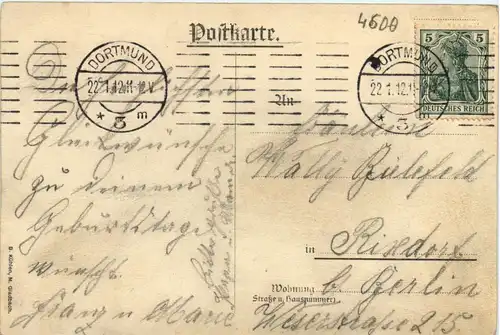 Postkarte.
4600
DORTMUND
22.1.12.11-12.V.
* 3 m
DORTMUND
22.1.12.1
* 3 m
5 5
DEUTSCHES REICH
Die herzlichsten
Glückwünsche
zu deinem
Geburtstage
wünscht
Franz u Marie
An
Fräulein
Wally Bielefeld
in Rixdorf
b. Berlin
Wohnung
Straße u. Hausnummer
Weserstraße 215
B. Kühlen, M. Gladbach.